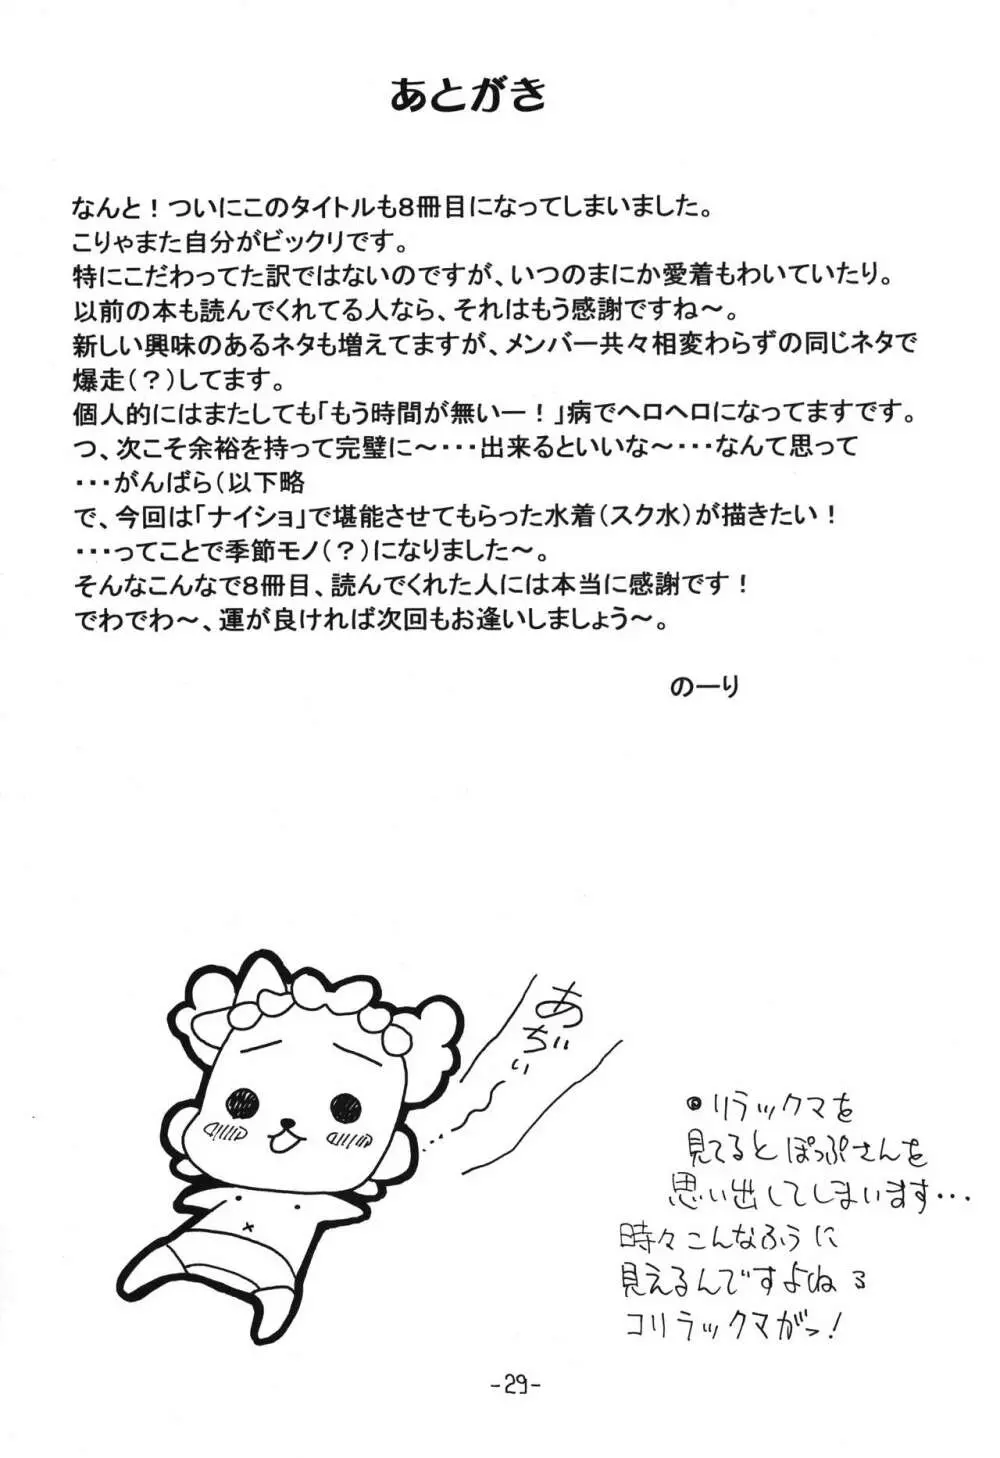 あとがき
なんと！ついにこのタイトルも8冊目になってしまいました。
こりゃまた自分がビックリです。
特にこだわってた訳ではないのですが、いつのまにか愛着もわいていたり。
以前の本も読んでくれてる人なら、それはもう感謝ですね～。
新しい興味のあるネタも増えてますが、メンバー共々相変わらずの同じネタで
爆走(？)してます。
個人的にはまたしても「もう時間が無いー！」病でヘロヘロになってますです。
つ、次こそ余裕を持って完璧に～･･･出来るといいな～･･･なんて思って
･･･がんばら(以下略
で、今回は「ナイショ」で堪能させてもらった水着(スク水)が描きたい！
･･･ってことで季節モノ(？)になりました～。
そんなこんなで8冊目、読んでくれた人には本当に感謝です！
でわでわ～、運が良ければ次回もお逢いしましょう～。
のーり
あぢぃ〜…
リラックマを
見てると ぽっぷさんを
思い出してしまいます…
時々こんなふうに
見えるんですよねぇ
コリラックマがっ!
-29-